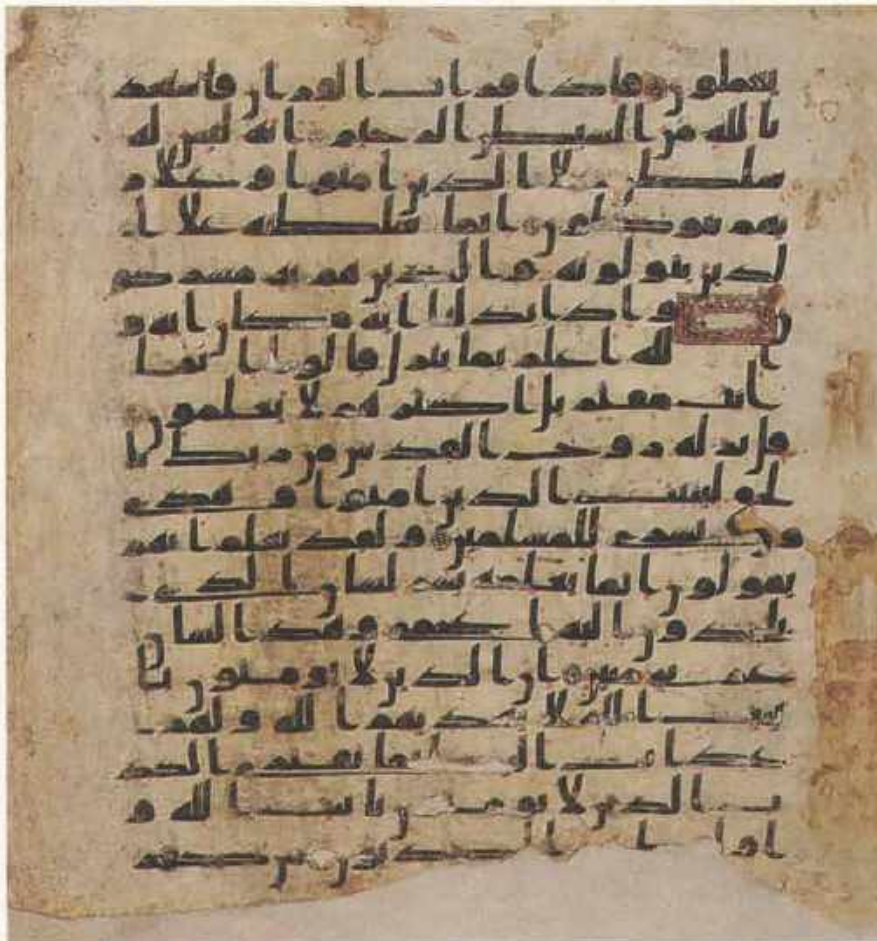 يعملون فاذا قرات القران فاستعذ
بالله من الشيطن الرجيم انه ليس له
سلطن علا الذين امنوا وعلا ر
بهم يتوكلون انما سلطنه علا ا
لذين يتولونه والذين هم به مشركو
ن واذا بدلنا اية مكان اية و
ا لله اعلم بما ينزل قالوا انما
انت مفتر بل اكثرهم لا يعلمون
قل نزله روح القدس من ربك با
لحق ليثبت الذين امنوا وهدى
وبشرى للمسلمين ولقد نعلم انهم
يقولون انما يعلمه بشر لسان الذى
يلحدون اليه اعجمى وهذا لسان
عربى مبين ان الذين لا يومنون با
يت الله لا يهديهم الله ولهم
عذاب اليم انما يفترى الكذ
ب الذين لا يومنون بايت الله و
الكذبون من كفر